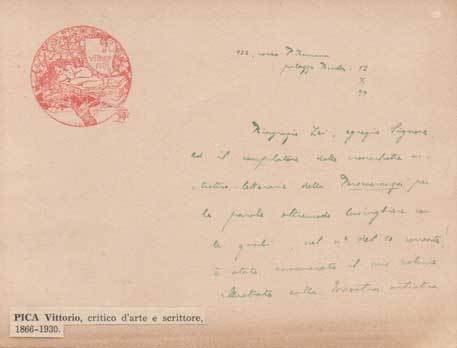 VITTORIO
PICA
corso P. Romana
palazzo 12
X
99
Ringrazio Lei, egregio Signore,
ed il compilatore delle cronachette ar-
tistico-letterarie della Perseveranza per
le parole oltremodo lusinghiere con
le quali nel n° del 10 corrente,
è stato annunciato il mio volume
illustrato sulla Mostra artistica
PICA Vittorio, critico d'arte e scrittore,
1866-1930.